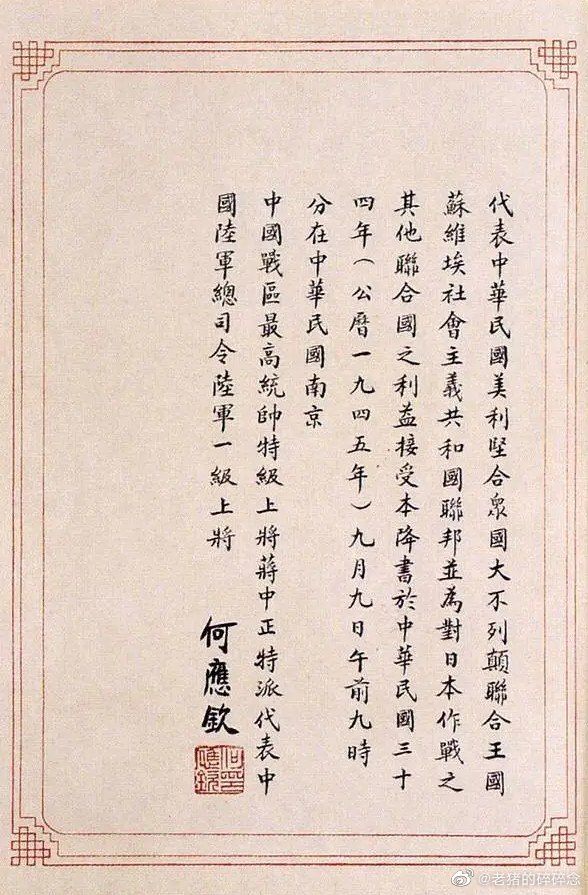 代表中華民國美利堅合衆國大不列顛聯合王國
蘇維埃社會主義共和國聯邦並為對日本作戰之
其他聯合國之利益接受本降書於中華民國三十
四年(公曆一九四五年)九月九日午前九時
分在中華民國南京
中國戰區最高統帥特級上將蔣中正特派代表中
國陸軍總司令陸軍一級上將
何應欽
何應欽
@老猪的碎碎念